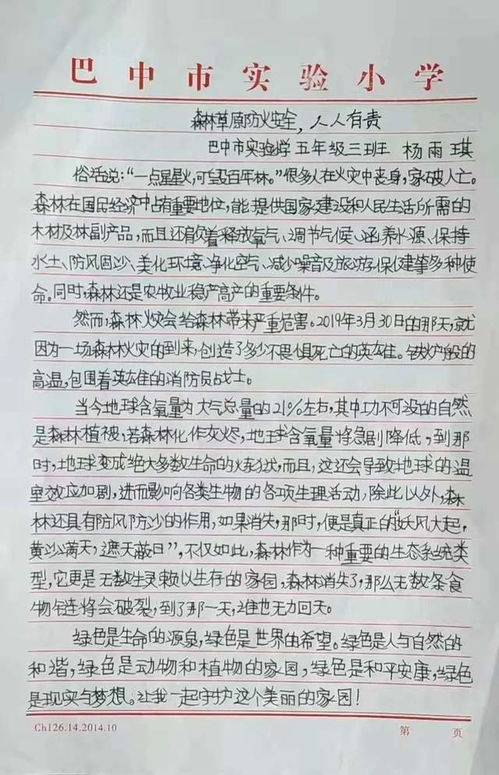 巴中市实验小学
森林草原防火安全，人人有责
巴中市实验小学 五年级三班 杨雨琪
俗话说："一点星星火，可毁百年林。"很多人在火灾中丧身，家破人亡。
森林在国民经济中占有重要地位，能提供国家建设和人民生活所需的
木材及林副产品，而且还肩负着释放氧气、调节气候、涵养水源、保持
水土、防风固沙、美化环境、净化空气、减少噪音及旅游保健等多种使
命。同时，森林还是农牧业稳产高产的重要条件。
然而，森林火灾会给森林带来严重危害。2019年3月30日的那天，就
因为一场森林火灾的到来，创造了多少不畏惧死亡的英雄。铁炉般的
高温，包围着英雄的消防员战士。
当今地球含氧量为大气总量的21%左右，其中功不可没的自然
是森林植被，若森林化作灰烬，地球含氧量将急剧降低，到那
时，地球变成绝大多数生命的炼狱，而且，这还会导致地球的温
室效应加剧，进而影响各类生物的各项生理活动，除此以外，森
林还具有防风防沙的作用，如果消失，那时，便是真正的"妖风大起，
黄沙满天，遮天蔽日"，不仅如此，森林作为一种重要的生态系统类
型，它更是无数生灵赖以生存的家园，森林消失了，那么无数条食
物链将会破裂，到了那一天，谁也无力回天。
绿色是生命的源泉，绿色是世界的希望。绿色是人与自然的
和谐，绿色是动物和植物的家园，绿色是和平安康，绿色
是现实与梦想。让我一起守护这个美丽的家园！
Ch126.14.2014.10 第 页